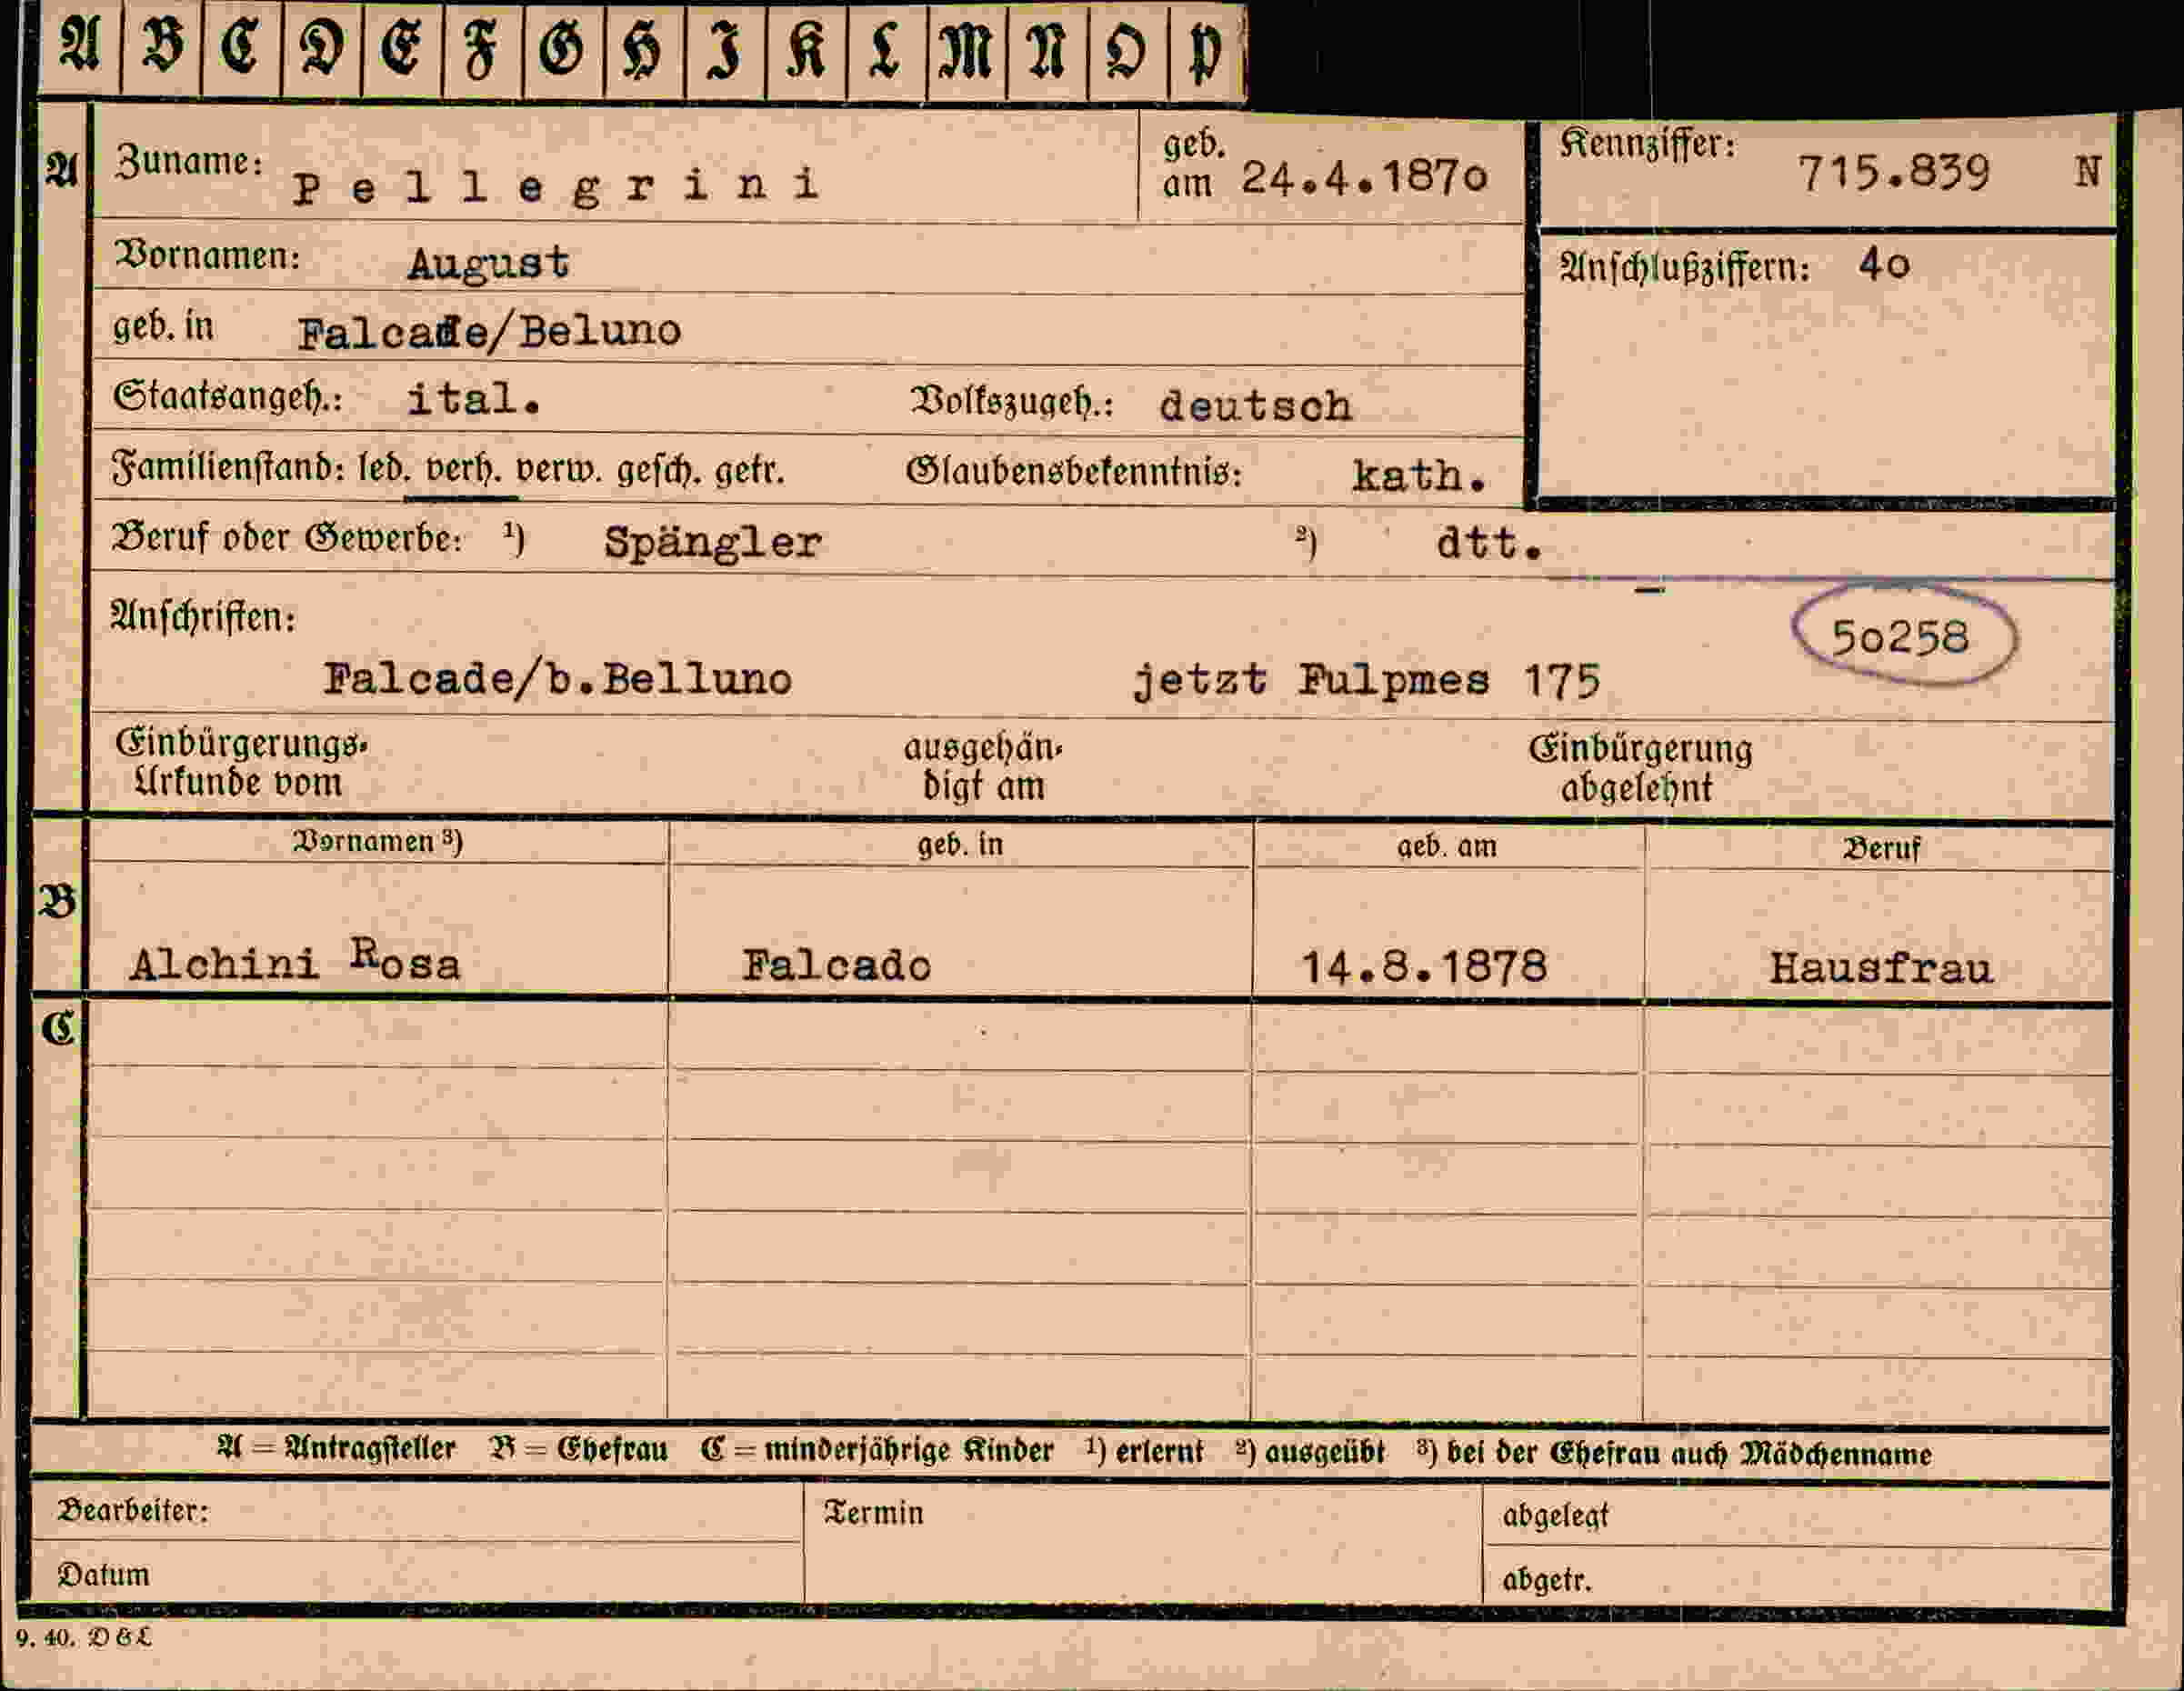 A B C D E F G H I K L M N O P
A Zuname: Pellegrini geb. am 24.4.1870 Kennziffer: 715.839 N
Vornamen: August Anschlußziffern: 40
geb. in Falcade/Beluno
Staatsangeh.: ital. Volkszugeh.: deutsch
Familienstand: led. verh. verw. gesch. getr. Glaubensbekenntnis: kath.
Beruf oder Gewerbe: ¹) Spängler ²) dtt.
Anschriften: 50258
Falcade/b.Belluno jetzt Fulpmes 175
Einbürgerungs- ausgehän- Einbürgerung
Urkunde vom digt am abgelehnt
Vornamen ³) geb. in geb. am Beruf
B
Alchini Rosa Falcado 14.8.1878 Hausfrau
C
A = Antragsteller B = Ehefrau C = minderjährige Kinder ¹) erlernt ²) ausgeübt ³) bei der Ehefrau auch Mädchenname
Bearbeiter: Termin abgelegt
Datum abgetr.
9. 40. D & L